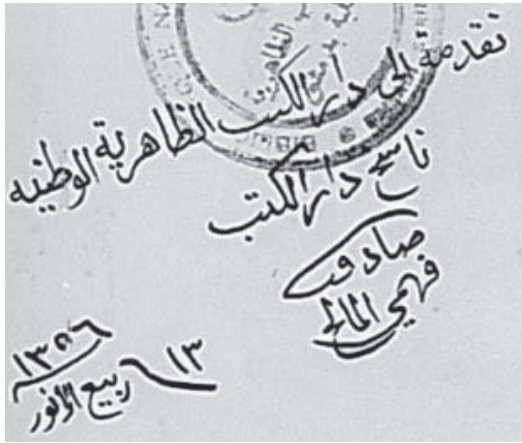 تقدمة إلى دار الكتب الظاهرية الوطنية
ناسخ دار الكتب
صادق
فهمي المالح
١٣ ربيع الأنور
١٣٥٦